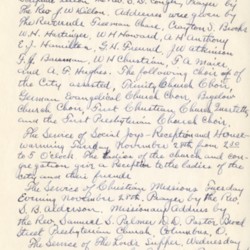 the Rev. J. W. Dillon. Addresses was given by
the Reverends Freeman Chase, Crayton S. Brooks
W. H. Hettinger, W. H. Howard, A. H. Anthony
E. J. Humiston, G. H. Pound, J. W. Atkinson
W. H. Christian, F. A. Moore
and A. P. Hughes. The following choir of
the City assisted, Trinity Church Choir,
German Evangelical Church Choir, Baptist
Church Choir, First Christian Church Quartette
and the First Presbyterian Church Choir.
The Service of Social Joys - Reception and House
warming Friday November 24th from 2:30
to 5 O'clock. The Ladies of the church and con-
gregation give a Reception to the ladies of the
city and their friends
The Service of Christian Missions Tuesday
Evening November 28th, Prayer by the Rev.
S. B. Alderson. Missionary Address by
the Rev. Samuel S. Palmer D. D. Pastor Broad
Street Presbyterian Church, Columbus, O.
The Service of the Lords Supper, Wednesday